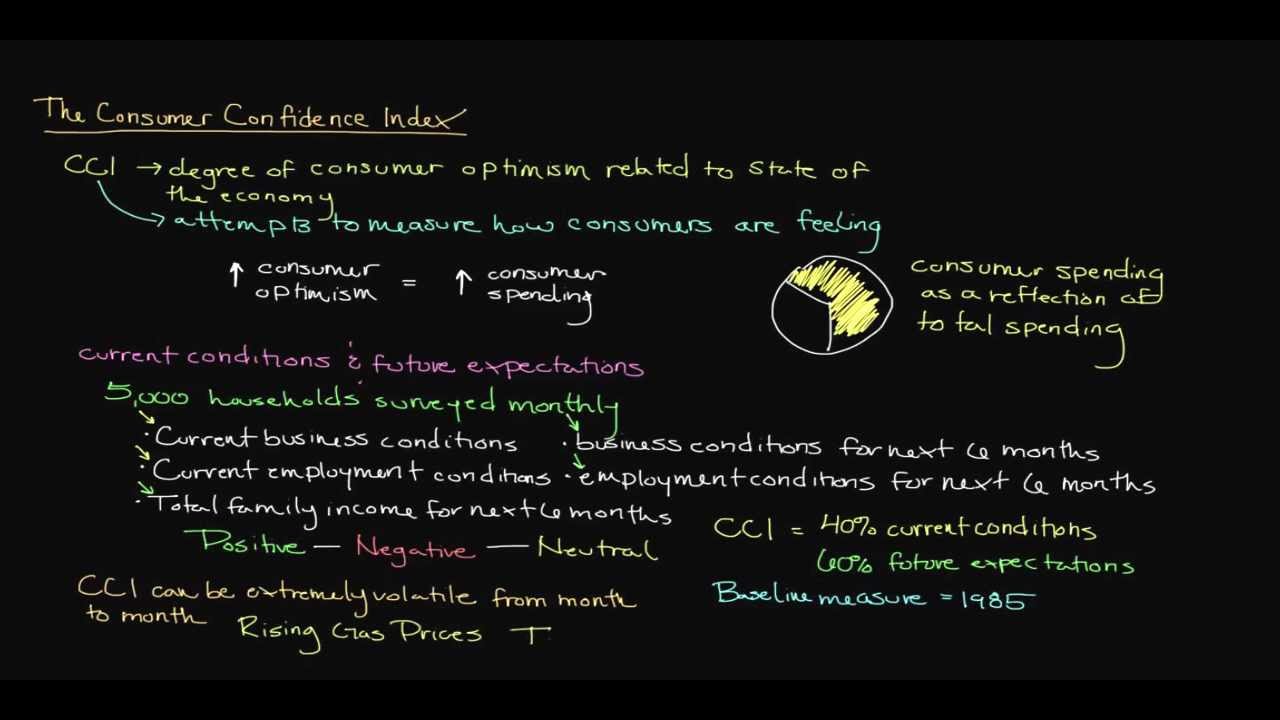 The Consumer Confidence Index
CCI → degree of consumer optimism related to state of
the economy
→ attempts to measure how consumers are feeling
↑ consumer optimism = ↑ consumer spending
consumer spending
as a reflection of
total spending
current conditions & future expectations
5,000 households surveyed monthly
· Current business conditions
· Current employment conditions
· Total family income for next 6 months
· business conditions for next 6 months
· employment conditions for next 6 months
Positive — Negative — Neutral
CCI = 40% current conditions
60% future expectations
Baseline measure = 1985
CCI can be extremely volatile from month
to month
Rising Gas Prices T